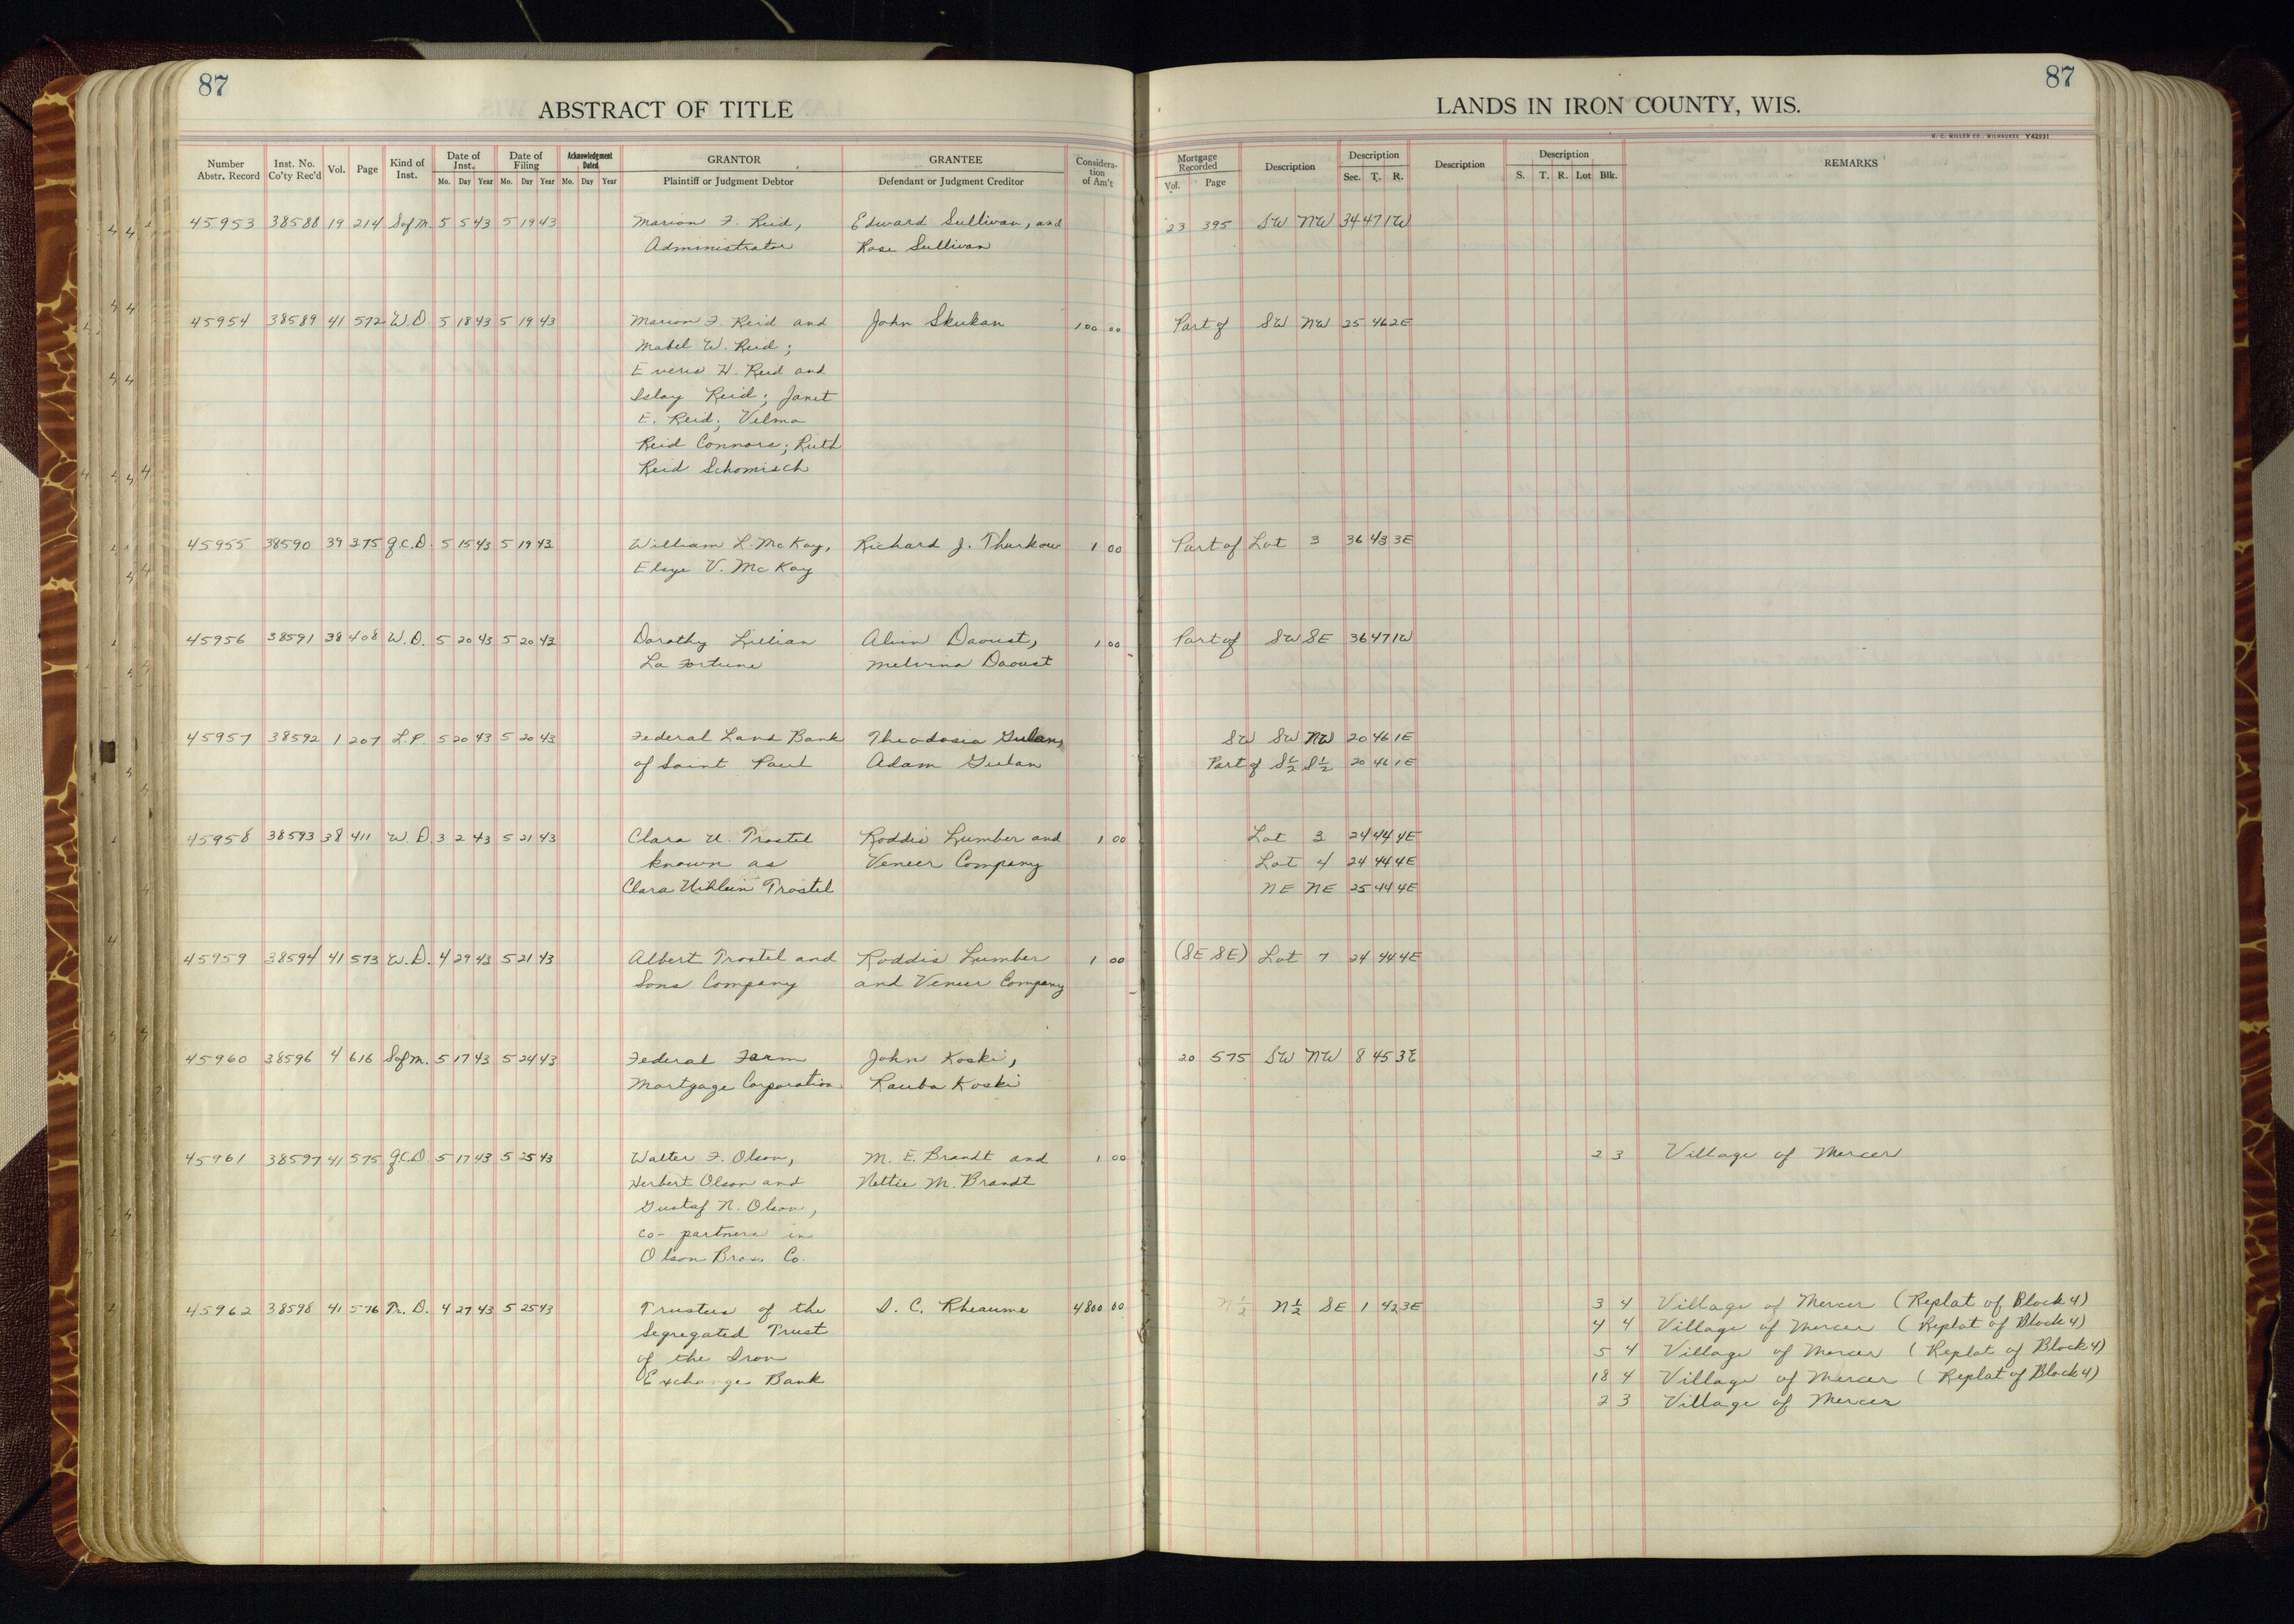 87
ABSTRACT OF TITLE
Number Abstr. Record | Inst. No. Co'ty Rec'd | Vol. | Page | Kind of Inst. | Date of Inst. Mo. Day Year | Date of Filing Mo. Day Year | Acknowledgment Dated Mo. Day Year | GRANTOR Plaintiff or Judgment Debtor | GRANTEE Defendant or Judgment Creditor | Consideration of Am't
45953 38588 19 214 S of M. 5 5 43 5 19 43 Marion F. Reid, Edward Sullivan, and
Administrator Rose Sullivan
45954 38589 41 572 W.D. 5 18 43 5 19 43 Marion F. Reid and John Skukan 100 00
Mabel W. Reid;
H. Reid and
Islay Reid; Janet
E. Reid; Velma
Reid Connors; Ruth
Reid Schomisch
45955 38590 39 375 Q.C.D. 5 15 43 5 19 43 William L. McKay, Richard J. Thurkow 1 00
Elsye V. McKay
45956 38591 38 408 W.D. 5 20 43 5 20 43 Dorothy Lillian Alvin Daoust, 1 00
La Fortune Melvina Daoust
45957 38592 1 207 L.P. 5 20 43 5 20 43 Federal Land Bank Theodosia Gulan,
of Saint Paul Adam Gulan
45958 38593 38 411 W.D. 3 2 43 5 21 43 Clara U. Trostel Roddis Lumber and 1 00
known as Veneer Company
Clara Uihlein Trostel
45959 38594 41 573 W.D. 4 29 43 5 21 43 Albert Trostel and Roddis Lumber 1 00
Sons Company and Veneer Company
45960 38596 4 616 S of M. 5 17 43 5 24 43 Federal Farm John Koski,
Mortgage Corporation Rauba Koski
45961 38597 41 575 Q.C.D. 5 17 43 5 25 43 Walter F. Olson, M. E. Brandt and 1 00
Herbert Olson and Nettie M. Brandt
Gustaf N. Olson,
co-partners in
Olson Bros. Co.
45962 38598 41 576 Tr. D. 4 27 43 5 25 43 Trustees of the D. C. Rheaume 4800 00
Segregated Trust
of the Iron
Exchange Bank
87
LANDS IN IRON COUNTY, WIS.
H. C. MILLER CO., MILWAUKEE Y42931
Mortgage Recorded Vol. Page | Description | Description Sec. T. R. | Description | Description S. T. R. Lot Blk. | REMARKS
23 395 SW NW 34 47 1W
Part of SW NW 25 46 2E
Part of Lot 3 36 43 3E
Part of SW SE 36 47 1W
SW SW NW 20 46 1E
Part of S½ S½ 20 46 1E
Lot 3 24 44 4E
Lot 4 24 44 4E
NE NE 25 44 4E
(SE SE) Lot 7 24 44 4E
20 575 SW NW 8 45 3E
2 3 Village of Mercer
N½ N½ SE 1 42 3E 3 4 Village of Mercer (Replat of Block 4)
4 4 Village of Mercer (Replat of Block 4)
5 4 Village of Mercer (Replat of Block 4)
18 4 Village of Mercer (Replat of Block 4)
2 3 Village of Mercer